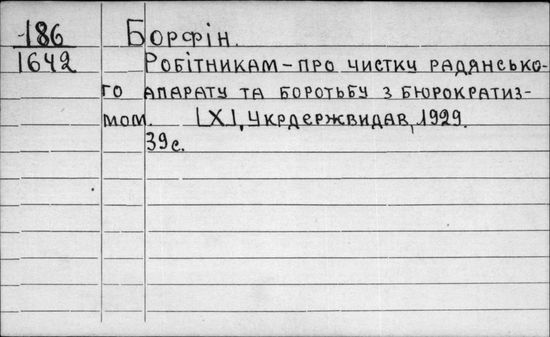 186 Борфін.
1642 Робітникам – про чистку радянсько-
го апарату та боротьбу з бюрократиз-
мом. [Х], Укрдержвидав, 1929.
39 с.